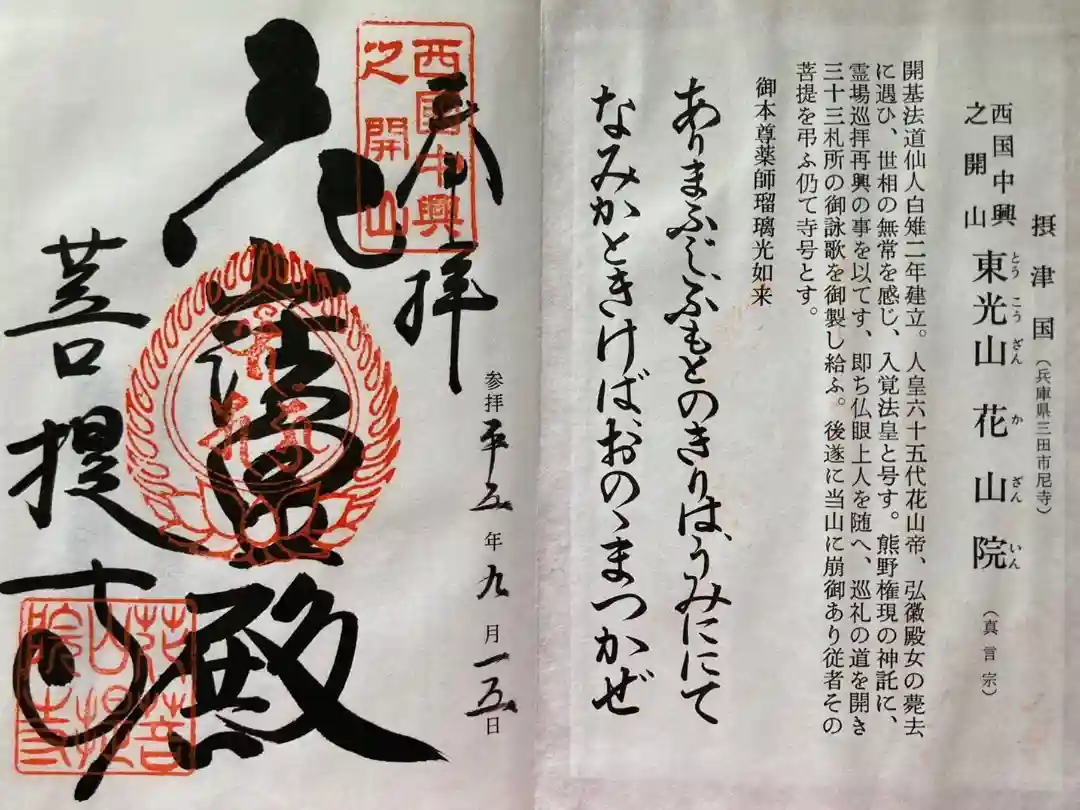 摂津国（兵庫県三田市尼寺）
西国中興
之開山
東光山花山院（真言宗）
とうこうざんかざんいん
開基法道仙人白雉二年建立。人皇六十五代花山帝、弘徽殿女の薨去
に遇ひ、世相の無常を感じ、入覚法皇と号す。熊野権現の神託に、
霊場巡拝再興の事を以てす、即ち仏眼上人を随へ、巡礼の道を開き
三十三札所の御詠歌を御製し給ふ。後遂に当山に崩御あり従者その
菩提を弔ふ仍て寺号とす。
御本尊薬師瑠璃光如来
ありまふじふもとのきりは、うみににて
なみかときけばおのゝまつかぜ
奉拝
西国中興
之開山
参拝平五年九月一五日
殿
菩提寺
花山院菩提寺